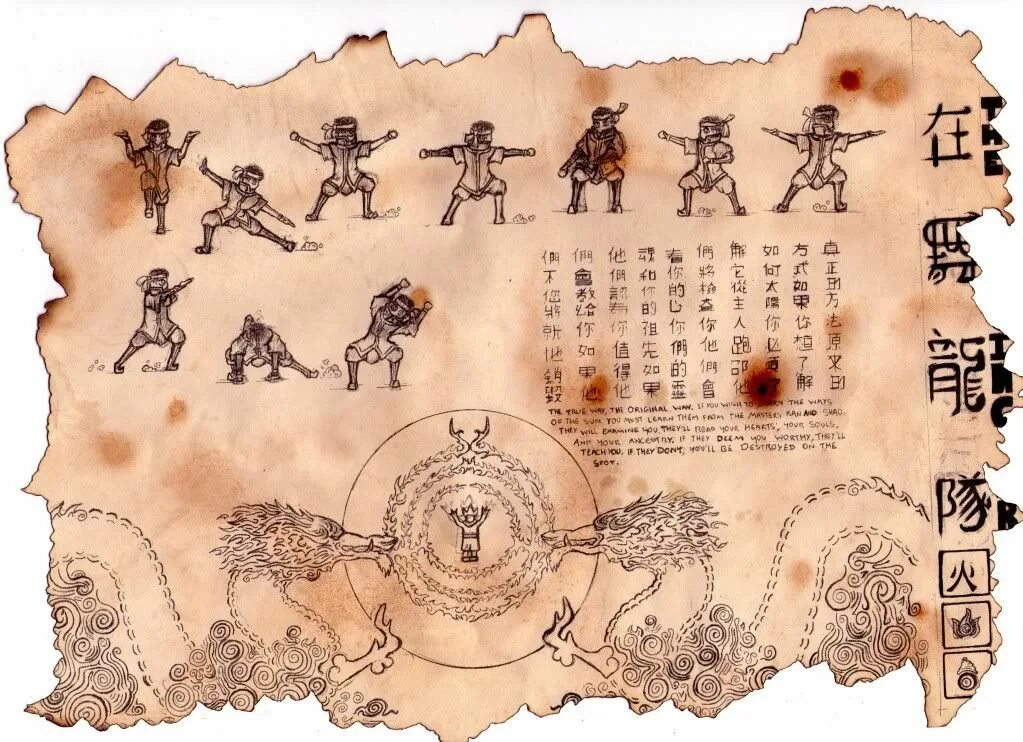 真正到方法原來到
方式如果你想了解
如何太陽你必
解它從主人跑邵他
們將檢查你他們會
看你的心你們的靈
魂和你的祖先如果
他們認為你值得他
們會教給你如果他
們不您將就地銷毀
THE TRUE WAY, THE ORIGINAL WAY. IF YOU WISH TO LEARN THE WAYS
OF THE SUN YOU MUST LEARN THEM FROM THE MASTERS RAN AND SHAO.
THEY WILL EXAMINE YOU THEY'LL READ YOUR HEARTS, YOUR SOULS,
AND YOUR ANCESTRY, IF THEY DEEM YOU WORTHY, THEY'LL
TEACH YOU. IF THEY DON'T, YOU'LL BE DESTROYED ON THE
SPOT.
在
龍
隊
火
THE
ING